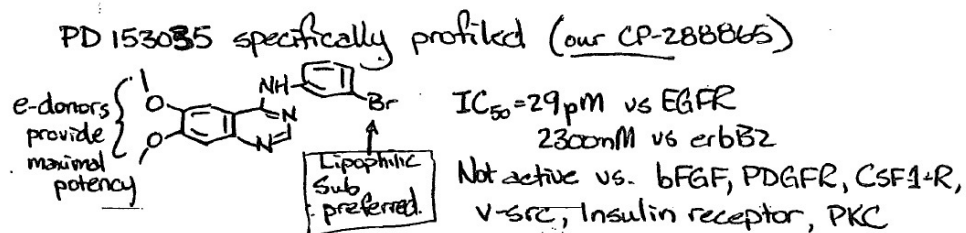 PD 153035 specifically profiled (our CP-288865)
e-donors
provide
maximal
potency
O
O
NH
N
N
Br
Lipophilic
Sub
preferred.
IC50=29pM vs EGFR
2300nM vs erbB2
Not active vs. bFGF, PDGFR, CSF1-R,
v-src, Insulin receptor, PKC